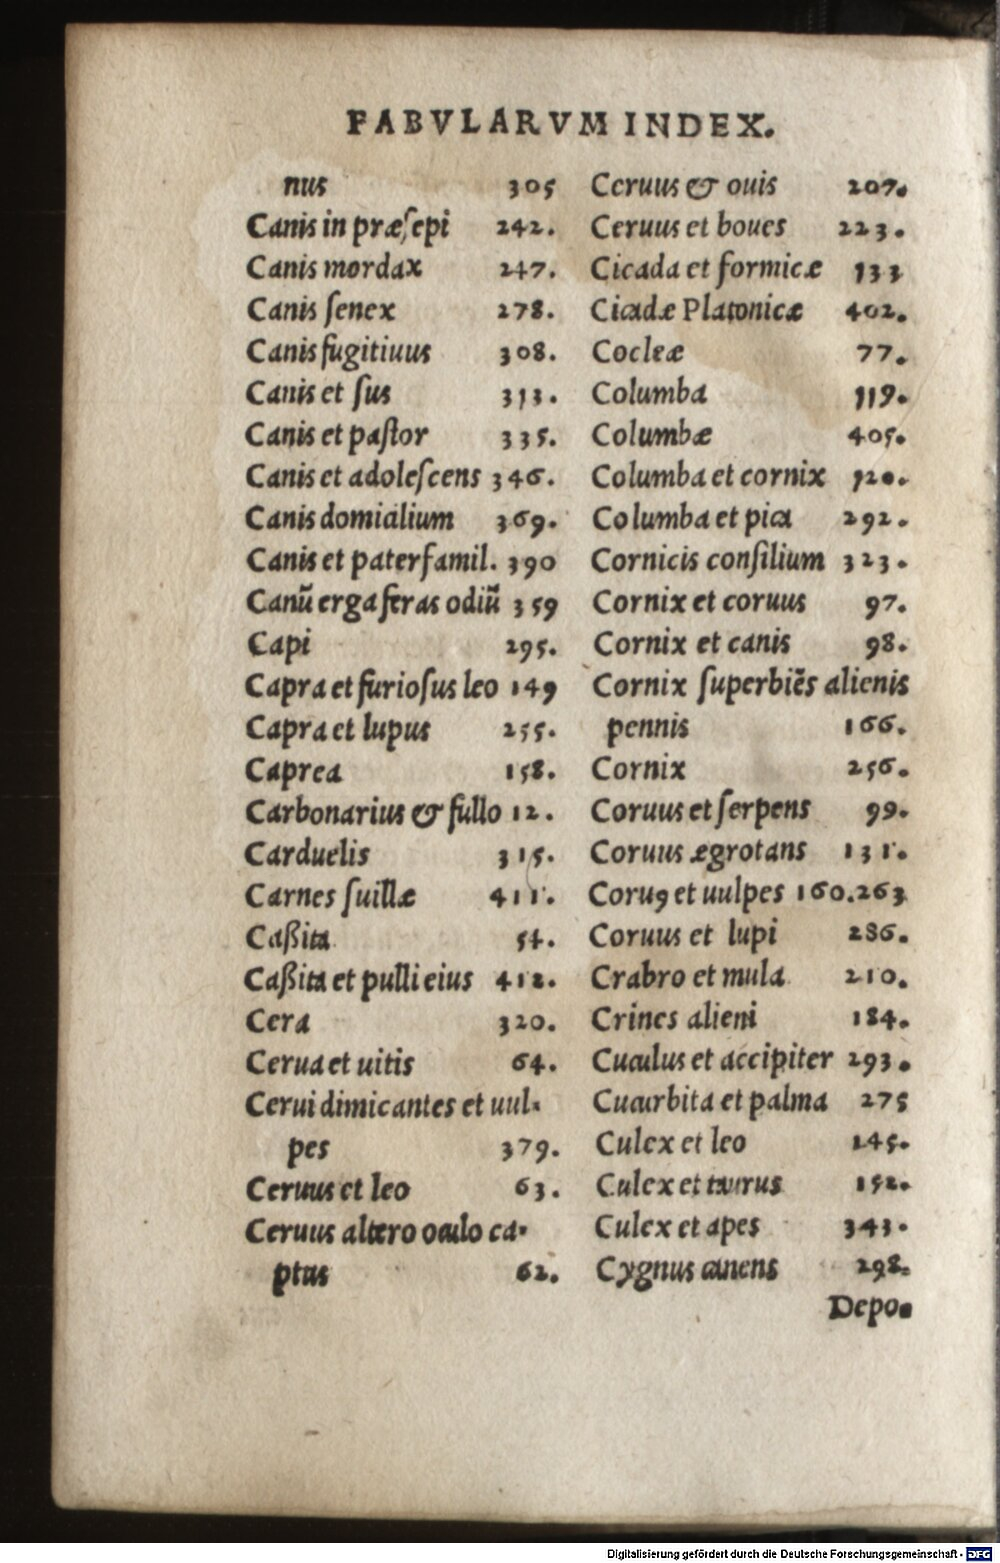 FABVLARVM INDEX.
nus 305
Canis in præſepi 242.
Canis mordax 247.
Canis ſenex 278.
Canis fugitiuus 308.
Canis et ſus 313.
Canis et paſtor 335.
Canis et adoleſcens 346.
Canis domialium 369.
Canis et paterfamil. 390
Canũ erga feras odiũ 359
Capi 295.
Capra et furioſus leo 149
Capra et lupus 255.
Caprea 158.
Carbonarius & fullo 12.
Carduelis 315.
Carnes ſuillæ 411.
Caßita 54.
Caßita et pulli eius 412.
Cera 320.
Cerua et uitis 64.
Cerui dimicantes et uul-
pes 379.
Ceruus et leo 63.
Ceruus altero oculo ca-
ptus 62.
Ceruus & ouis 207.
Ceruus et boues 223.
Cicada et formicæ 133
Cicadæ Platonicæ 402.
Cocleæ 77.
Columba 119.
Columbæ 405.
Columba et cornix 120.
Columba et pica 292.
Cornicis conſilium 323.
Cornix et coruus 97.
Cornix et canis 98.
Cornix ſuperbiẽs alienis
pennis 166.
Cornix 256.
Coruus et ſerpens 99.
Coruus ægrotans 131.
Coruꝯ et uulpes 160.263
Coruus et lupi 286.
Crabro et mula 210.
Crines alieni 184.
Cuculus et accipiter 293.
Cucurbita et palma 275
Culex et leo 145.
Culex et taurus 152.
Culex et apes 343.
Cygnus canens 298.
Depo-
Digitalisierung gefördert durch die Deutsche Forschungsgemeinschaft - DFG